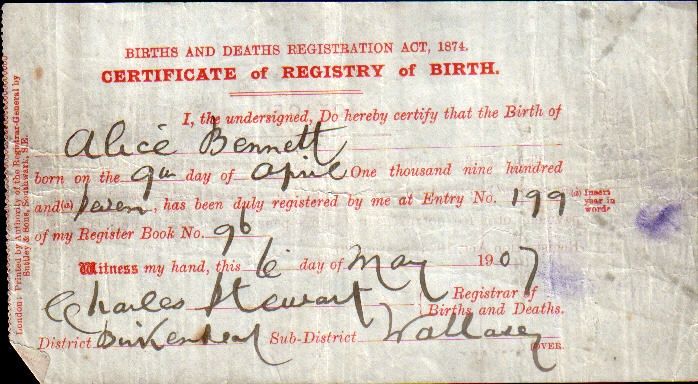 BIRTHS AND DEATHS REGISTRATION ACT, 1874.
CERTIFICATE of REGISTRY of BIRTH.
I, the undersigned, Do hereby certify that the Birth of
Alice Bennett
born on the 9th day of April One thousand nine hundred
and (a) Seven, has been duly registered by me at Entry No. 199
(a) Insert year in words
of my Register Book No. 96
Witness my hand, this 6 day of May 1907
Charles Stewart Registrar of Births and Deaths.
District Birkenhead Sub-District Wallasey
OVER.
London: Printed by Authority of the Registrar-General by
Suttley & Sons, Southwark, S.E.